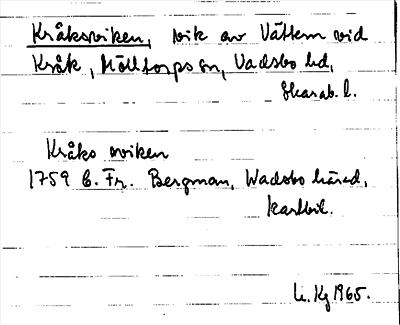 Kråksviken, vik av Vättern vid
Kråk, Mölltorps sn, Vadsbo hd,
Skarab. l.
Kråks wiken
1759 C. Fr. Bergman, Wadsbo härad,
kartbil.
Kg 1965.